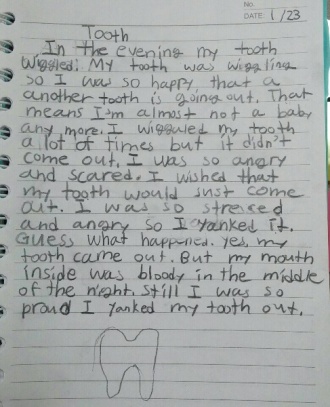 NO.
DATE. 1/23
Tooth
In the evening my tooth
wiggled. My tooth was wiggling
so I was so happy that a
another tooth is going out. That
means I'm almost not a baby
any more. I wiggled my tooth
a lot of times but it didn't
come out. I was so angry
and scared. I wished that
my tooth would just come
out. I was so stresed
and angry so I yanked it.
Guess what happened. yes, my
tooth came out. But my mouth
inside was bloody in the middle
of the night. Still I was so
proud I yanked my tooth out.